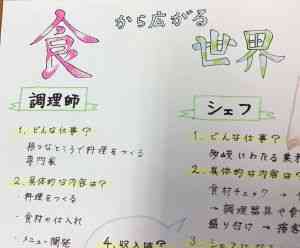 食から広がる世界
調理師
1. どんな仕事?
様々なところで料理をつくる
専門家
2. 具体的な内容は?
・料理をつくる
・食材の仕入れ
・メニュー開発
4. 収入は?
シェフ
1. どんな仕事?
多岐にわたる業務
2. 具体的な内容は?
食材チェック →
→ 調理器具や食
盛り付け → 接客